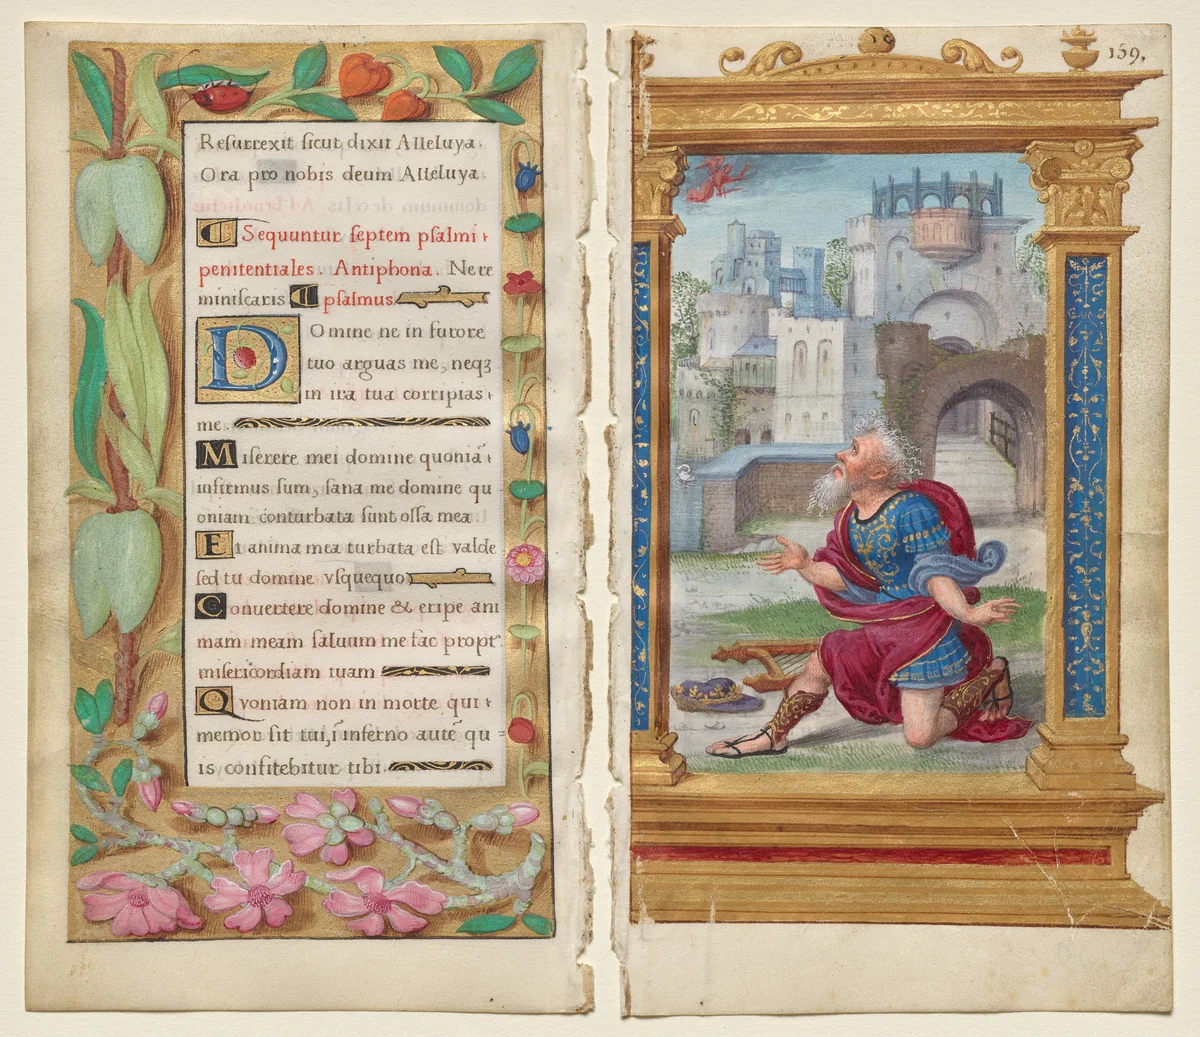 Resurrexit sicut dixit Alleluya.
Ora pro nobis deum Alleluya.
Sequuntur septem psalmi
penitentiales. Antiphona. Nere
miniscaris psalmus
Domine ne in furore
tuo arguas me, neqꝫ
in ira tua corripias
me.
Miserere mei domine quoniā
infirmus sum, sana me domine qu
oniam conturbata sunt ossa mea
Et anima mea turbata est valde
sed tu domine vsquequo
Conuertere domine & eripe ani
mam meam saluum me fac propt
misericordiam tuam
Qvoniam non in morte qui
memor sit tui, ī inferno autē qu
is confitebitur tibi.
159,